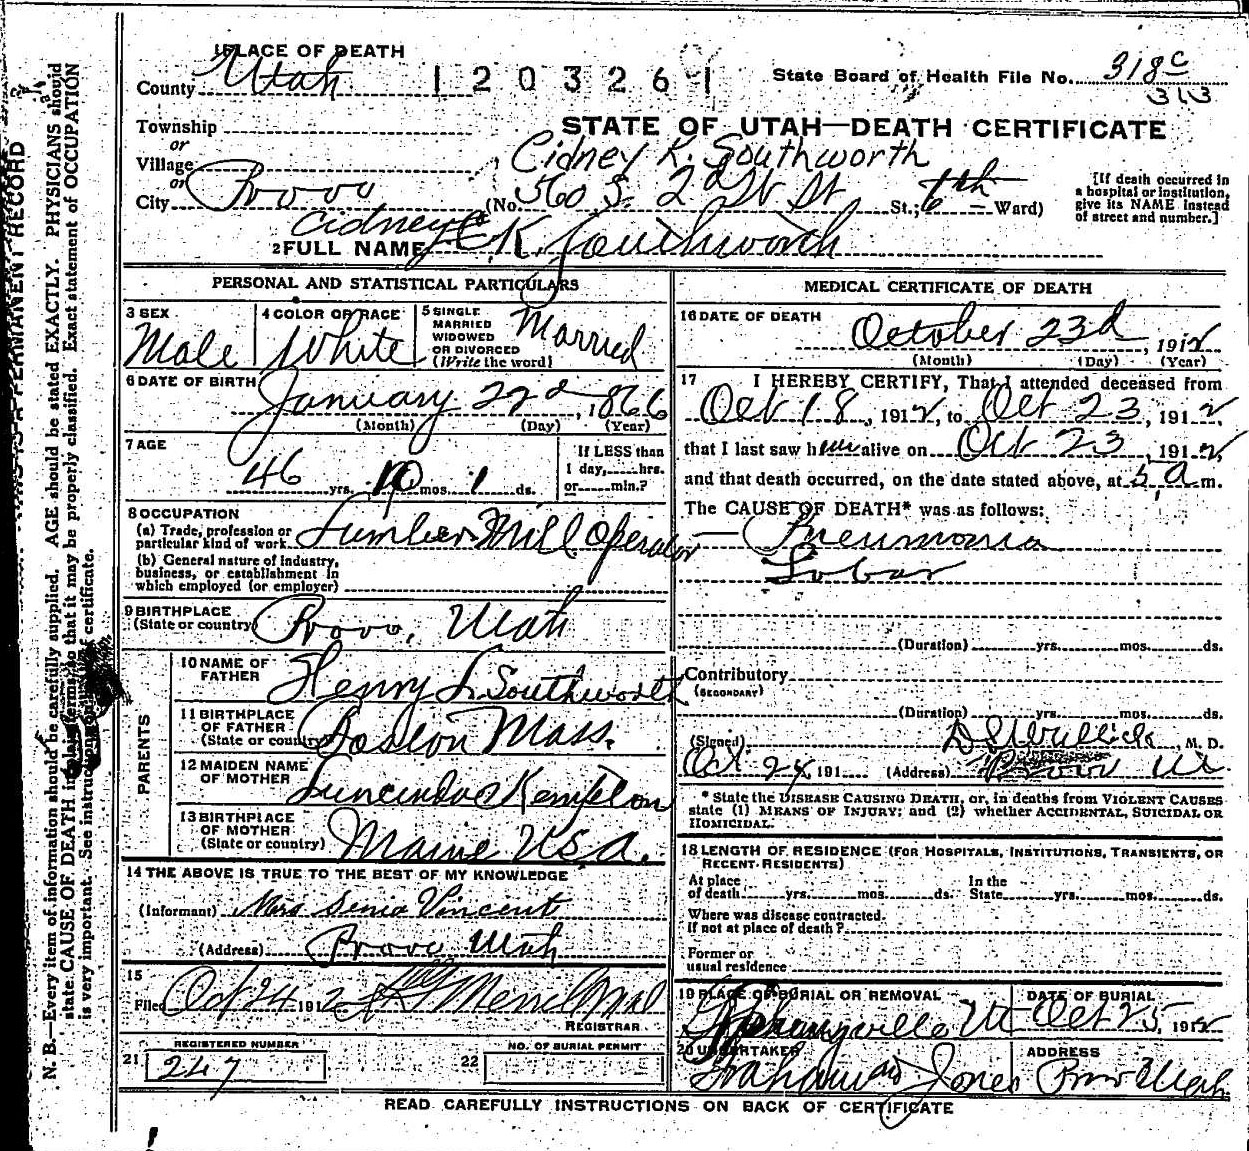 1 PLACE OF DEATH
County Utah
1203261
State Board of Health File No. 318c
313
Township
or
Village
or
City Provo
STATE OF UTAH—DEATH CERTIFICATE
Cidney K. Southworth
(No 560 S. 2d W St St.; 6th Ward)
[If death occurred in
a hospital or institution,
give its NAME instead
of street and number.]
Cidney
2 FULL NAME K. Southworth
PERSONAL AND STATISTICAL PARTICULARS
3 SEX
Male
4 COLOR OR RACE
White
5 SINGLE
MARRIED
WIDOWED
OR DIVORCED
(Write the word)
Married
6 DATE OF BIRTH
January 22d, 1866
(Month) (Day) (Year)
7 AGE
46 yrs. 10 mos. 1 ds.
If LESS than
1 day, hrs.
or min.?
8 OCCUPATION
(a) Trade, profession or
particular kind of work Lumber Mill Operator
(b) General nature of industry,
business, or establishment in
which employed (or employer)
9 BIRTHPLACE
(State or country) Provo, Utah
PARENTS
10 NAME OF
FATHER
Henry L. Southworth
11 BIRTHPLACE
OF FATHER
(State or country)
Boston Mass.
12 MAIDEN NAME
OF MOTHER
Kempton
13 BIRTHPLACE
OF MOTHER
(State or country)
Maine U.S.A.
14 THE ABOVE IS TRUE TO THE BEST OF MY KNOWLEDGE
(Informant) Mrs Senia Vincent
(Address) Provo Utah
15
Filed Oct 24 1912 Merrill
REGISTRAR
REGISTERED NUMBER
21 247
NO. OF BURIAL PERMIT
22
MEDICAL CERTIFICATE OF DEATH
16 DATE OF DEATH
October 23d, 1912
(Month) (Day) (Year)
17 I HEREBY CERTIFY, That I attended deceased from
Oct 18, 1912, to Oct 23, 1912,
that I last saw him alive on Oct 23, 1912,
and that death occurred, on the date stated above, at 5 a m.
The CAUSE OF DEATH* was as follows:
Pneumonia
Lobar
(Duration) yrs. mos. ds.
Contributory
(SECONDARY)
(Duration) yrs. mos. ds.
(Signed) M. D.
Oct 24, 191 (Address) Provo Ut
* State the DISEASE CAUSING DEATH, or, in deaths from VIOLENT CAUSES
state (1) MEANS OF INJURY; and (2) whether ACCIDENTAL, SUICIDAL OR
HOMICIDAL.
18 LENGTH OF RESIDENCE (FOR HOSPITALS, INSTITUTIONS, TRANSIENTS, OR
RECENT RESIDENTS)
At place
of death yrs. mos. ds.
In the
State yrs. mos. ds.
Where was disease contracted.
If not at place of death?
Former or
usual residence
19 PLACE OF BURIAL OR REMOVAL
Springville Ut
DATE OF BURIAL
Oct 25, 1912
20 UNDERTAKER
Graham and Jones
ADDRESS
Provo Utah
READ CAREFULLY INSTRUCTIONS ON BACK OF CERTIFICATE
PERMANENT RECORD
N. B.—Every item of information should be carefully supplied. AGE should be stated EXACTLY. PHYSICIANS should
state CAUSE OF DEATH in plain terms, so that it may be properly classified. Exact statement of OCCUPATION
is very important. See instructions on back of certificate.